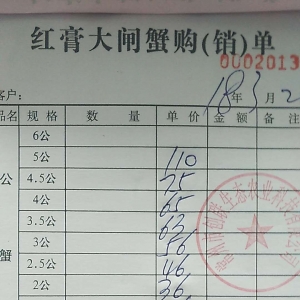 红膏大闸蟹购(销)单
0002013
客户: 18年3月2
品名 规格 数量 单价 金额 备注
6公
5公 110
公 4.5公 75
4公 65
3.5公 63
3公 56
蟹 2.5公 46
2公 36